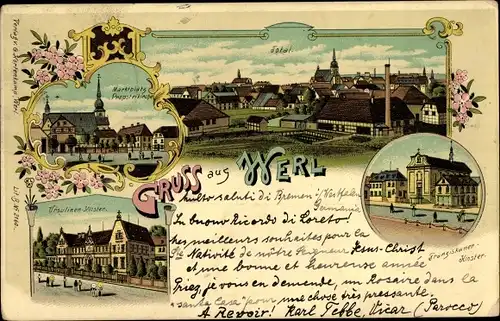 Total
Marktplatz u.
GRUSS aus WERL
Ursulinen-Kloster.
Franziskaner-
Kloster.
saluti di Bremen i/Westfalen
Germania
In buono Ricordo di Loreto!
mes meilleurs souhaites pour la
Ste Nativité de nôtre Seigneur Jesus-Christ
et une bonne et heureuse année
Priez, je vous en demende, un Rosaire dans la
santa Casa pour une chose très pressante.
A Revoir! Karl Tebbe, Vicar (Parocco)